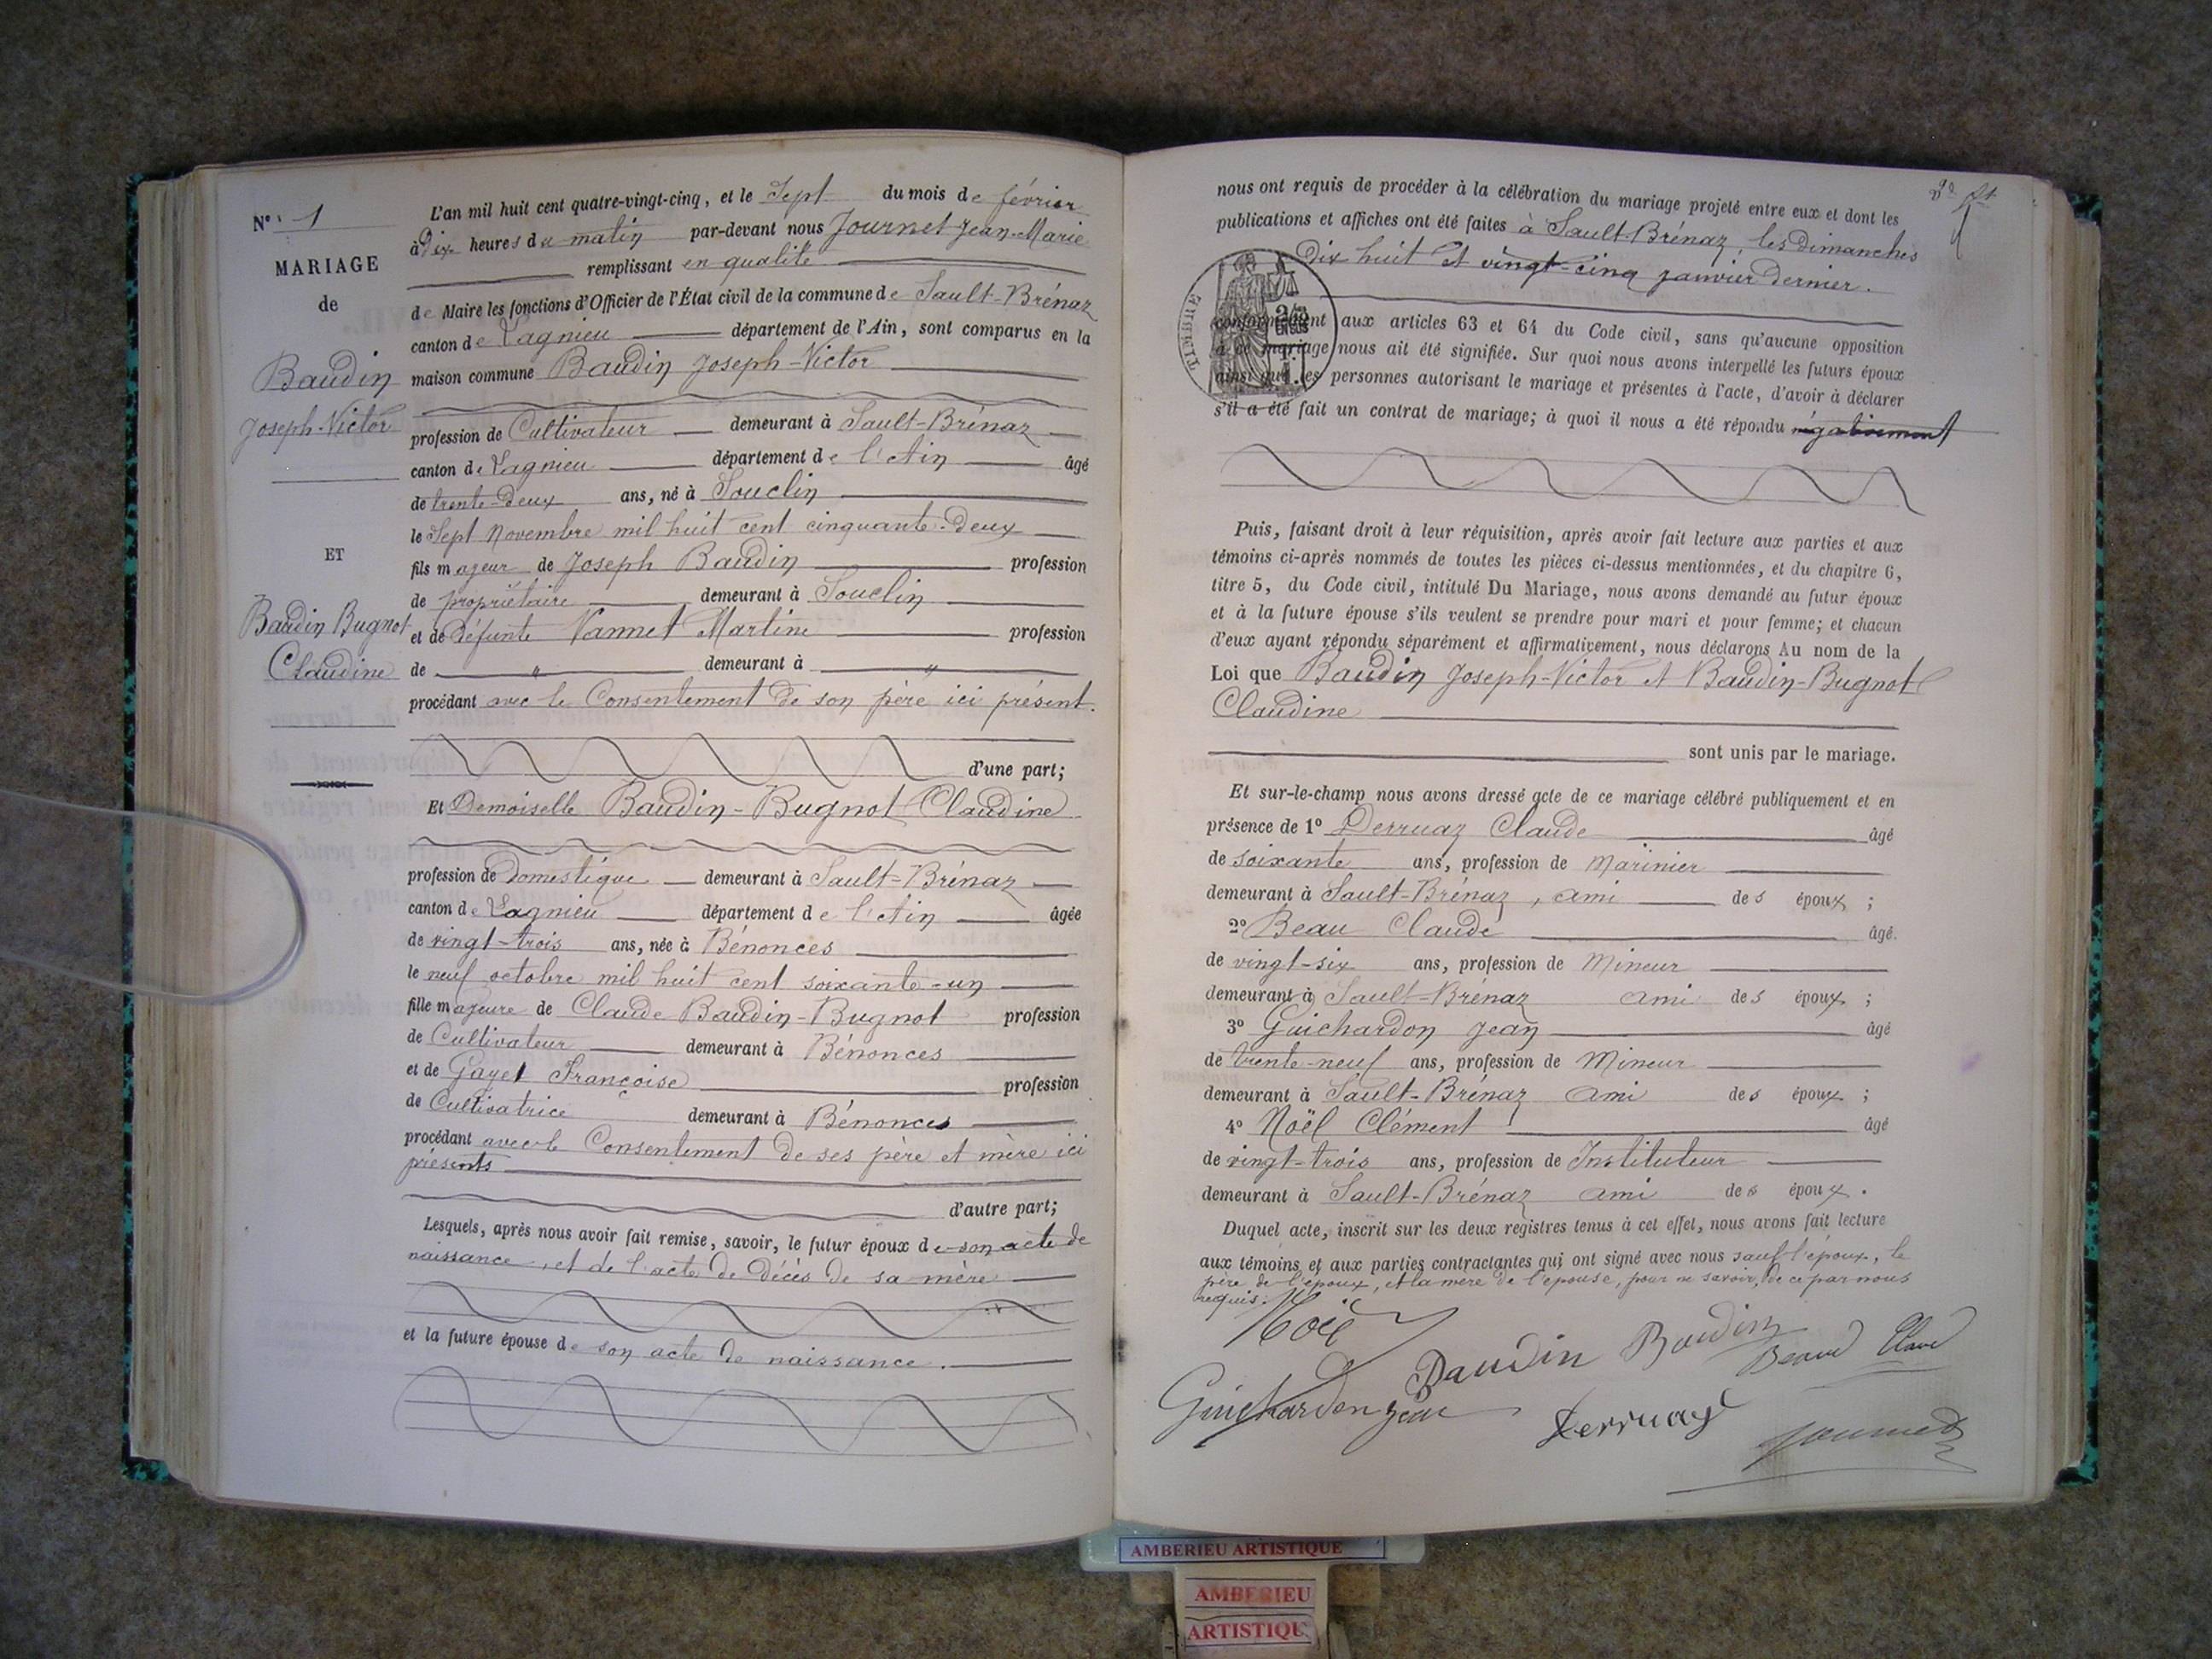 N° 1
MARIAGE
de
Baudin
Joseph-Victor
ET
Baudin Bugnot
Claudine
L'an mil huit cent quatre-vingt-cinq, et le Sept du mois de février
à Dix heures du matin par-devant nous Journet Jean-Marie
remplissant en qualité
de Maire les fonctions d'Officier de l'État civil de la commune de Sault-Brénaz
canton de Lagnieu département de l'Ain, sont comparus en la
maison commune Baudin Joseph-Victor
profession de Cultivateur demeurant à Sault-Brénaz
canton de Lagnieu département de l'Ain âgé
de trente-deux ans, né à Souclin
le Sept Novembre mil huit cent cinquante-deux
fils majeur de Joseph Baudin profession
de propriétaire demeurant à Souclin
et de Défunte Vannet Martine profession
de " demeurant à "
procédant avec le Consentement de son père ici présent.
d'une part;
Et Demoiselle Baudin-Bugnot Claudine
profession de Domestique demeurant à Sault-Brénaz
canton de Lagnieu département de l'Ain âgée
de vingt-trois ans, née à Bénonces
le neuf octobre mil huit cent soixante-un
fille majeure de Claude Baudin-Bugnot profession
de Cultivateur demeurant à Bénonces
et de Gayet Françoise profession
de Cultivatrice demeurant à Bénonces
procédant avec le Consentement de ses père et mère ici
présents
d'autre part;
Lesquels, après nous avoir fait remise, savoir, le futur époux de son acte de
naissance, et de l'acte de décès de sa mère
et la future épouse de son acte de naissance.
nous ont requis de procéder à la célébration du mariage projeté entre eux et dont les
publications et affiches ont été faites à Sault-Brénaz, les Dimanches
Dix huit et vingt-cinq janvier Dernier.
TIMBRE
conformément aux articles 63 et 64 du Code civil, sans qu'aucune opposition
à ce mariage nous ait été signifiée. Sur quoi nous avons interpellé les futurs époux
ainsi que les personnes autorisant le mariage et présentes à l'acte, d'avoir à déclarer
s'il a été fait un contrat de mariage; à quoi il nous a été répondu négativement
Puis, faisant droit à leur réquisition, après avoir fait lecture aux parties et aux
témoins ci-après nommés de toutes les pièces ci-dessus mentionnées, et du chapitre 6,
titre 5, du Code civil, intitulé Du Mariage, nous avons demandé au futur époux
et à la future épouse s'ils veulent se prendre pour mari et pour femme; et chacun
d'eux ayant répondu séparément et affirmativement, nous déclarons Au nom de la
Loi que Baudin Joseph-Victor et Baudin-Bugnot
Claudine
sont unis par le mariage.
Et sur-le-champ nous avons dressé acte de ce mariage célébré publiquement et en
présence de 1° Derruaz Claude âgé
de soixante ans, profession de Marinier
demeurant à Sault-Brénaz, ami des époux;
2° Beau Claude âgé
de vingt-six ans, profession de Mineur
demeurant à Sault-Brénaz ami des époux;
3° Guichardon Jean âgé
de trente-neuf ans, profession de Mineur
demeurant à Sault-Brénaz ami des époux;
4° Noël Clément âgé
de vingt-trois ans, profession de Instituteur
demeurant à Sault-Brénaz ami des époux.
Duquel acte, inscrit sur les deux registres tenus à cet effet, nous avons fait lecture
aux témoins et aux parties contractantes qui ont signé avec nous sauf l'époux, le
père de l'époux, et la mère de l'épouse, pour ne savoir, de ce par nous
requis.
Noël
Baudin Baudin Beaud Claud
Guichardon Jean Derruaz Journet
AMBERIEU ARTISTIQUE
AMBERIEU
ARTISTIQUE